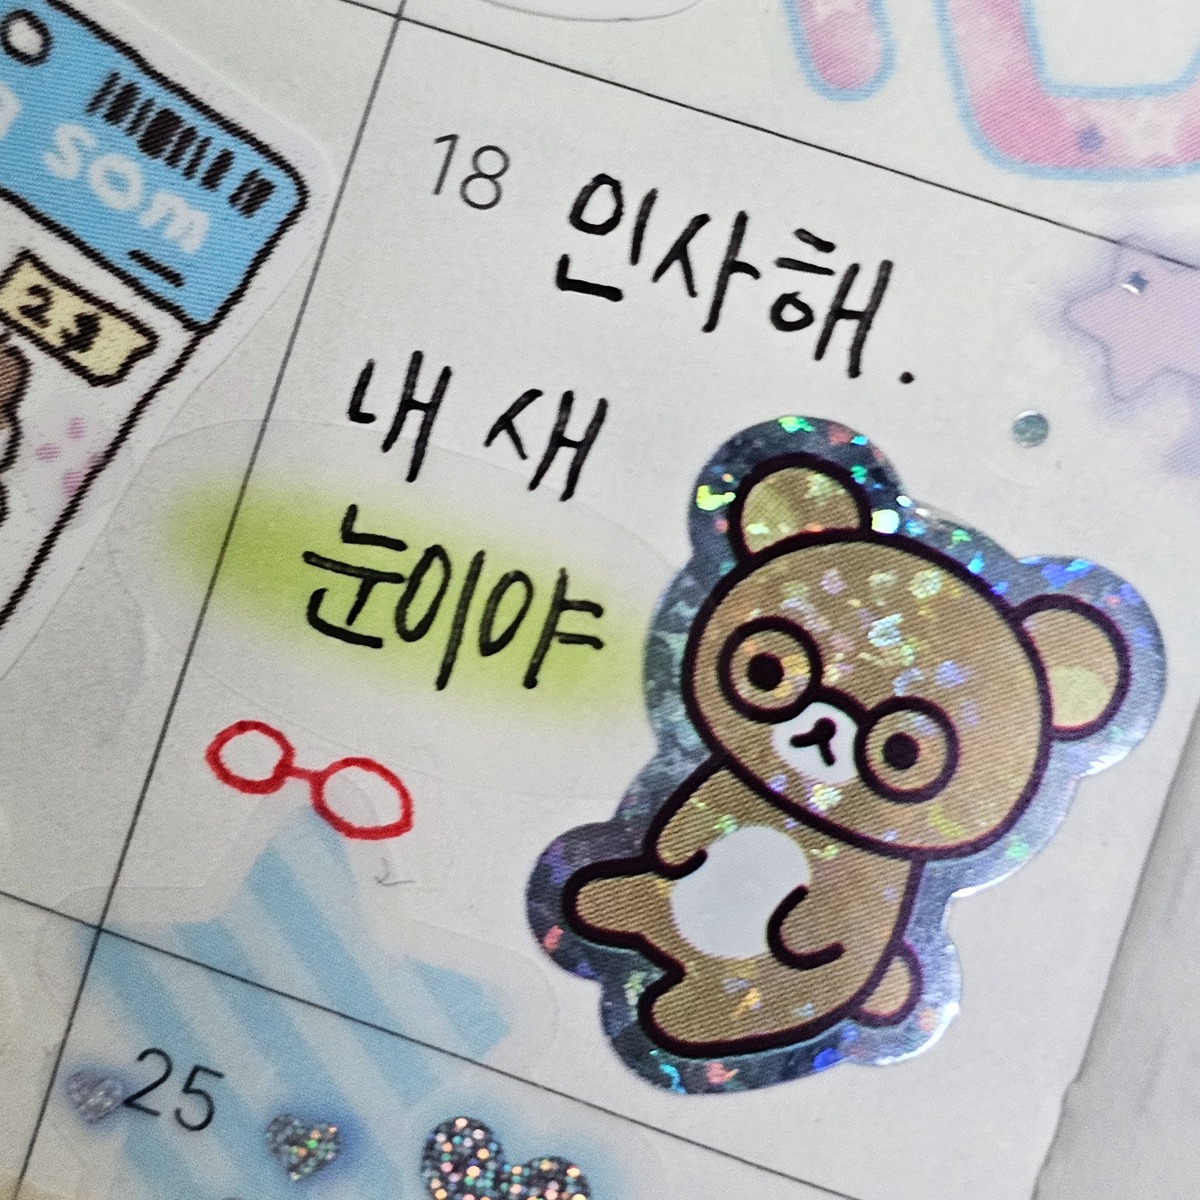 som
29
18 인사해.
내 새
눈이야
25